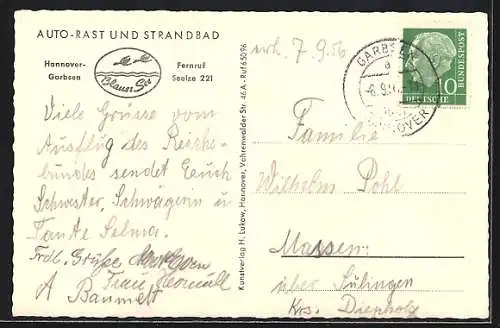 AUTO-RAST UND STRANDBAD
Hannover-
Garbsen
Blauer See
Fernruf
Seelze 221
Viele Grüsse vom
Ausflug des Reichs-
bundes sendet Euch
Schwester, Schwägerin u
Tante Selma.
Frdl. Grüße
Frau
A Baumert
Kunstverlag H. Lukow, Hannover, Vahrenwalder Str. 46A - Ruf 65096
erh. 7.9.56
GARBSEN
a
HANNOVER
DEUTSCHE
BUNDESPOST
10
Familie
Wilhelm Pohl
Massen
über Sulingen
Krs. Diepholz